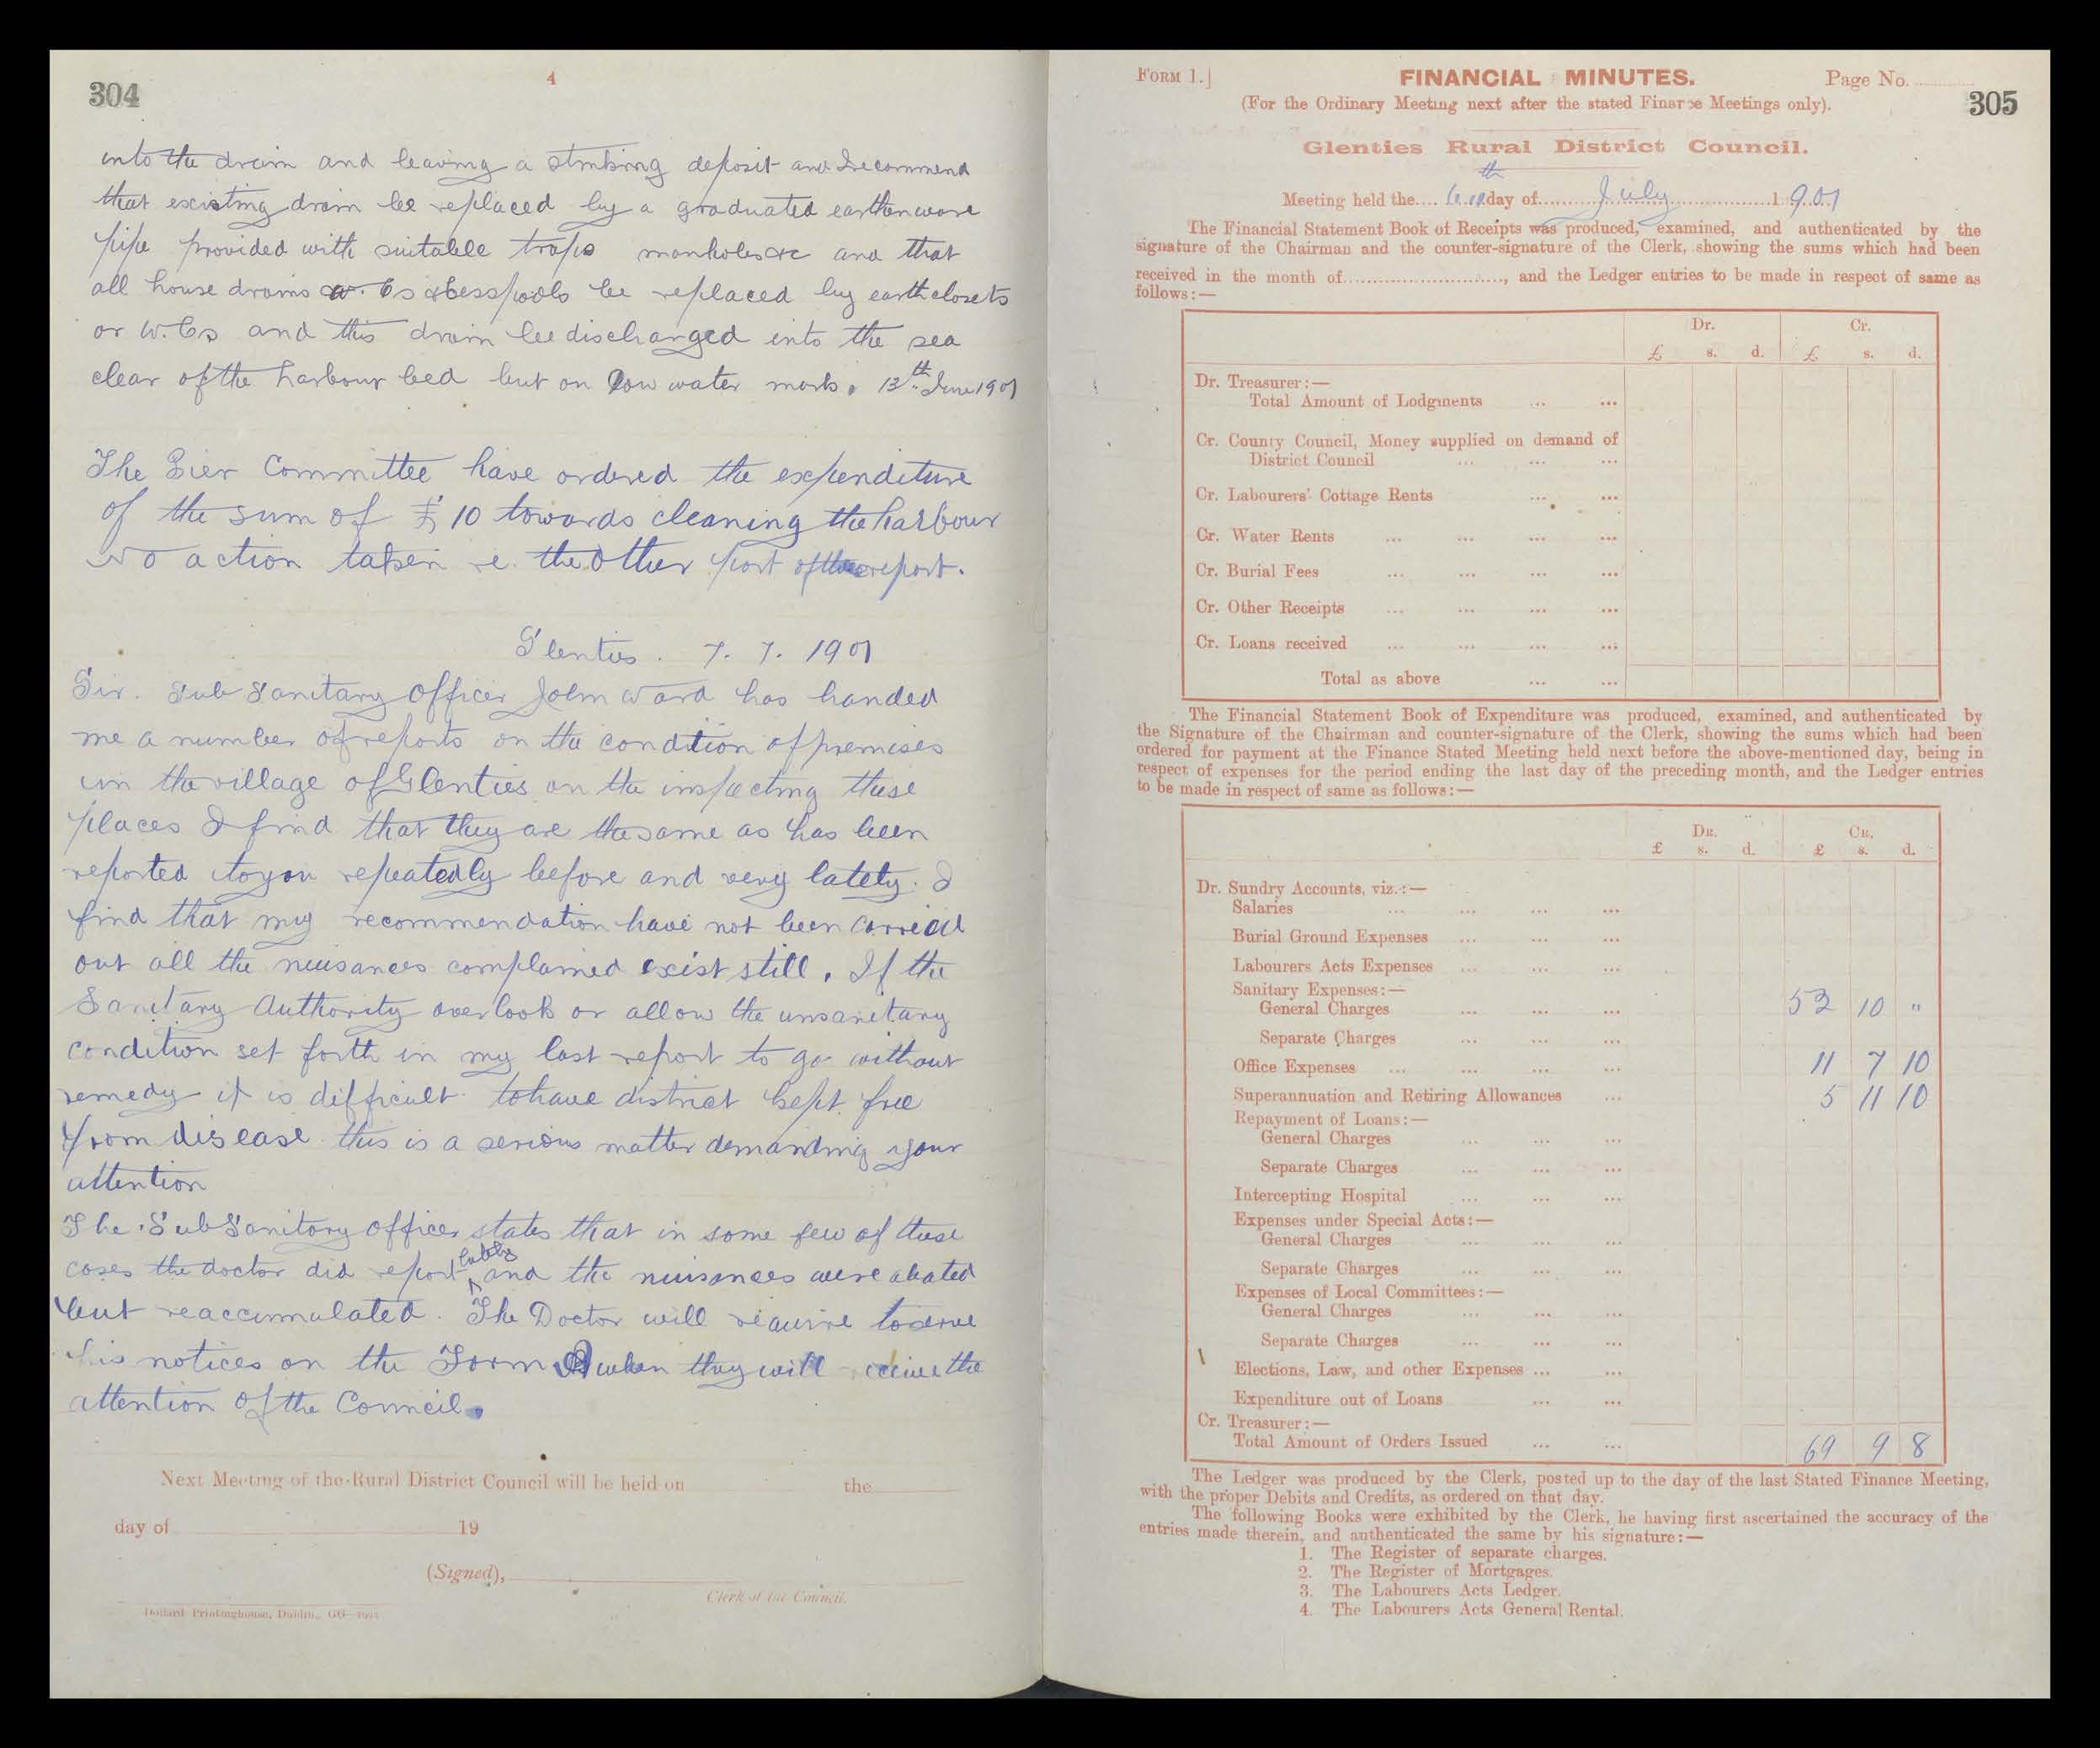 304
4
into the drain and leaving a stinking deposit and I recommend
that existing drain be replaced by a graduated earthenware
pipe provided with suitable traps manholes &c and that
all house drains w. Cs & cesspools be replaced by earth closets
or W. Cs and this drain be discharged into the sea
clear of the harbour bed but on low water mark. 13th June 1901
The Pier Committee have ordered the expenditure
of the sum of £10 towards cleaning the harbour
No action taken re. the other part of the report.
Glenties. 7. 7. 1901
Sir. Sub Sanitary Officer John Ward has handed
me a number of reports on the condition of premises
in the village of Glenties on the inspecting these
places I find that they are the same as has been
reported to you repeatedly before and very lately. I
find that my recommendation have not been carried
out all the nuisances complained exist still. If the
Sanitary Authority overlook or allow the unsanitary
condition set forth in my last report to go without
remedy it is difficult to have district kept free
from disease this is a serious matter demanding your
attention
The Sub Sanitary officer states that in some few of these
cases the doctor did report lately and the nuisances were abated
but reaccumulated. The Doctor will require to serve
his notices on the Form when they will receive the
attention of the Council.
Next Meeting of the Rural District Council will be held on the
day of 19
(Signed),
Clerk of the Council.
Dollard Printinghouse, Dublin,
FORM 1.]
FINANCIAL MINUTES.
Page No.
305
(For the Ordinary Meeting next after the stated Finance Meetings only).
Glenties Rural District Council.
Meeting held the.... th day of.......... July ..........1 901
The Financial Statement Book of Receipts was produced, examined, and authenticated by the
signature of the Chairman and the counter-signature of the Clerk, showing the sums which had been
received in the month of.........................., and the Ledger entries to be made in respect of same as
follows:—
Dr. Cr.
£ s. d. £ s. d.
Dr. Treasurer:—
Total Amount of Lodgments ... ...
Cr. County Council, Money supplied on demand of
District Council ... ... ...
Cr. Labourers' Cottage Rents ... ...
Cr. Water Rents ... ... ... ...
Cr. Burial Fees ... ... ... ...
Cr. Other Receipts ... ... ... ...
Cr. Loans received ... ... ... ...
Total as above ... ...
The Financial Statement Book of Expenditure was produced, examined, and authenticated by
the Signature of the Chairman and counter-signature of the Clerk, showing the sums which had been
ordered for payment at the Finance Stated Meeting held next before the above-mentioned day, being in
respect of expenses for the period ending the last day of the preceding month, and the Ledger entries
to be made in respect of same as follows:—
DR. CR.
£ s. d. £ s. d.
Dr. Sundry Accounts, viz.:—
Salaries ... ... ... ...
Burial Ground Expenses ... ... ...
Labourers Acts Expenses ... ... ...
Sanitary Expenses:—
General Charges ... ... ... 52 10 "
Separate Charges ... ... ...
Office Expenses ... ... ... ... 11 7 10
Superannuation and Retiring Allowances ... 5 11 10
Repayment of Loans:—
General Charges ... ... ...
Separate Charges ... ... ...
Intercepting Hospital ... ... ...
Expenses under Special Acts:—
General Charges ... ... ...
Separate Charges ... ... ...
Expenses of Local Committees:—
General Charges ... ... ...
Separate Charges ... ... ...
Elections, Law, and other Expenses ... ...
Expenditure out of Loans ... ...
Cr. Treasurer:—
Total Amount of Orders Issued ... ... 69 9 8
The Ledger was produced by the Clerk, posted up to the day of the last Stated Finance Meeting,
with the proper Debits and Credits, as ordered on that day.
The following Books were exhibited by the Clerk, he having first ascertained the accuracy of the
entries made therein, and authenticated the same by his signature:—
1. The Register of separate charges.
2. The Register of Mortgages.
3. The Labourers Acts Ledger.
4. The Labourers Acts General Rental.